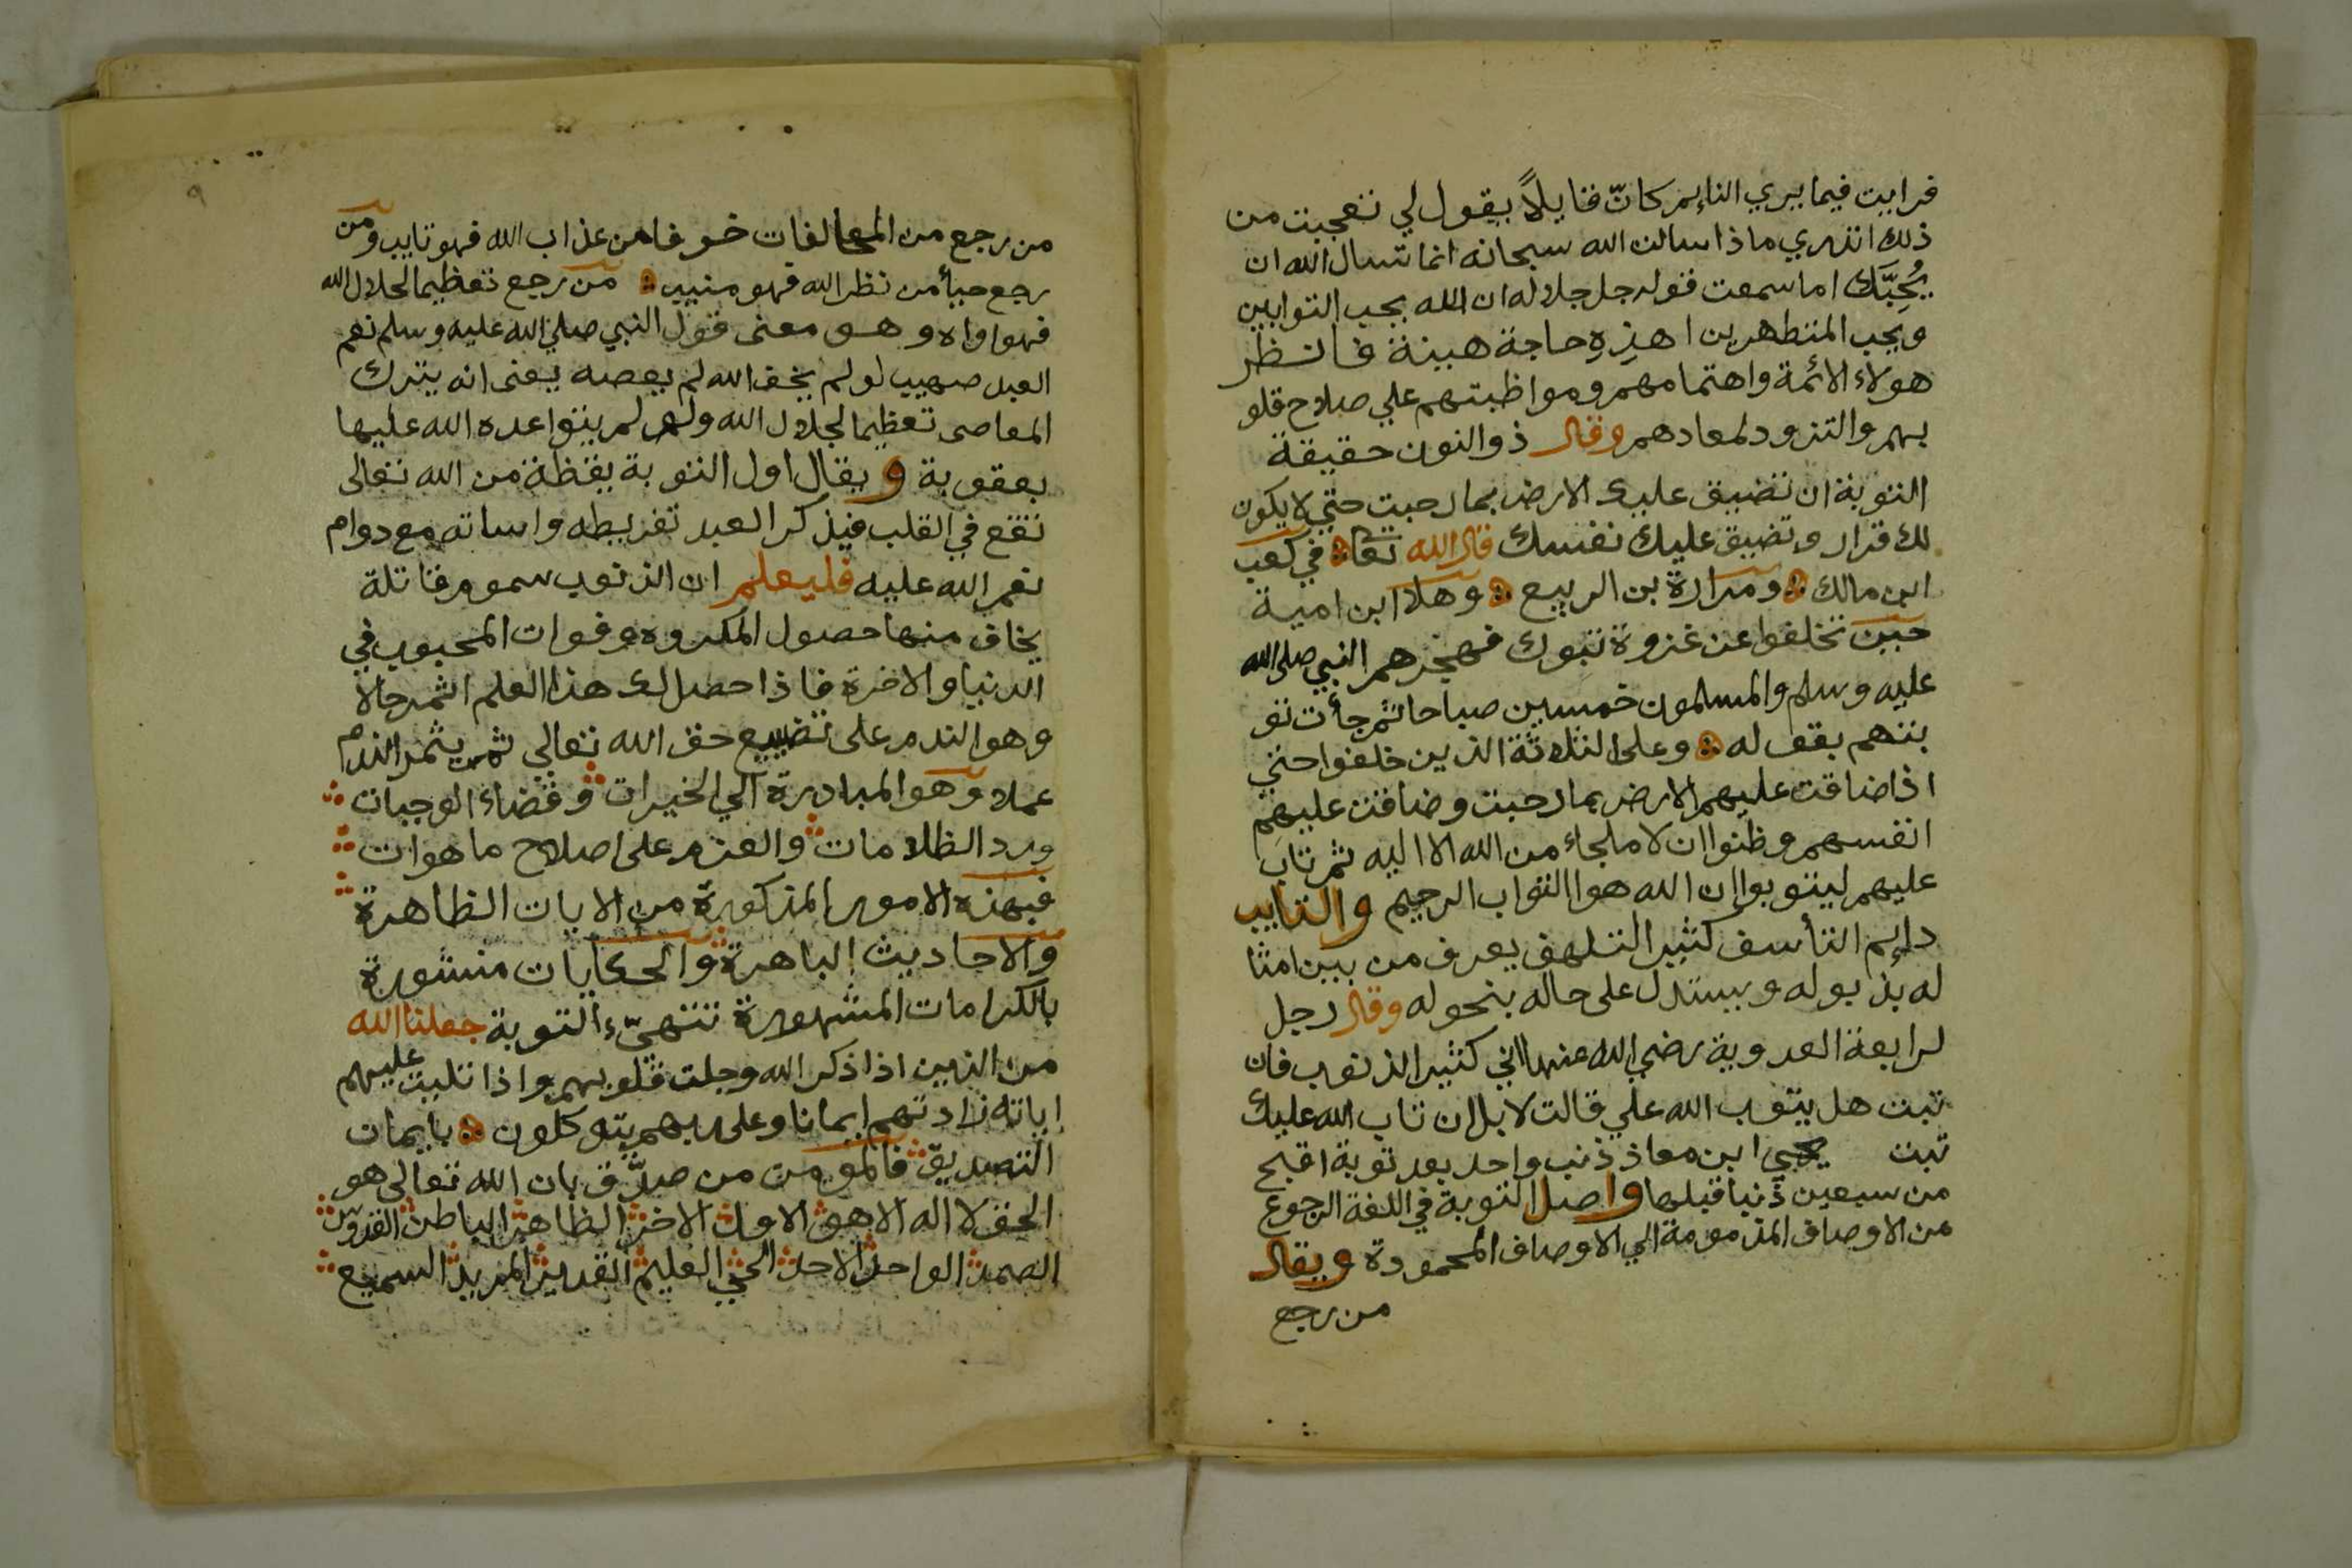 فرايت فيما يري النايم كانّ قايلاً يقول لي تعجبت من
ذلك اتدري ماذا سالت الله سبحانه انما تسال الله ان
يُحِبَّك اما سمعت قوله جل جلاله ان الله يحب التوابين
ويحب المتطهرين اهذِهِ حاجة هينة فانظر
هولاء الائمة واهتمامهم ومواظبتهم علي صلاح قلو
بهم والتزود لمعادهم وقال ذوالنون حقيقة
التوبة ان تضيق عليك الارض بما رحبت حتي لا يكون
لك قرار وتضيق عليك نفسك قال الله تعا في كعب
ابن مالك ومرارة بن الربيع وهلا ابن امية
حين تخلفوا عن غزوة تبوك فهجرهم النبي صلى الله
عليه وسلم والمسلمون خمسين صباحا ثم جأت تو
بتهم بقوله وعلى الثلاثة الذين خلفوا حتي
اذا ضاقت عليهم الارض بما رحبت وضاقت عليهم
انفسهم وظنوا ان لا ملجاء من الله الا اليه ثم تاب
عليهم ليتوبوا ان الله هو التواب الرحيم والتايب
دايم التأسف كثير التلهف يعرف من بين امثا
له بذبوله ويستدل على حاله بنحوله وقال رجل
لرابعة العدوية رضي الله عنها اني كثير الذنوب فان
تبت هل يتوب الله علي قالت لا بل ان تاب الله عليك
تبت يحيي ابن معاذ ذنب واحد بعد توبة اقبح
من سبعين ذنبا قبلها واصل التوبة في اللغة الرجوع
من الاوصاف المذمومة الي الاوصاف المحمودة ويقال
من رجع
٩
من رجع من المخالفات خوفا من عذاب الله فهو تايب ومن
رجع حيأ من نظر الله فهو منيب من رجع تعظيما لجلال الله
فهو اواه وهو معنى قول النبي صلي الله عليه وسلم نعم
العبد صهيب لو لم يخف الله لم يعصه يعنى انه يترك
المعاصى تعظيما لجلال الله ولو لم يتواعده الله عليها
بعقوبة ويقال اول التوبة يقظة من الله تعالى
تقع في القلب فيذكر العبد تفريطه واساته مع دوام
نعم الله عليه فليعلم ان الذنوب سموم قاتلة
يخاف منها حصول المكروه وفوات المحبوب في
الدنيا والاخرة فاذا حصل لك هذا العلم اثمر حالا
وهو الندم على تضييع حق الله تعالي ثم يثمر الندم
عملا وهو المبادرة الي الخيرات وقضاء الوجبات
ورد الظلامات والعزم على اصلاح ما هوات
فبهذه الامور المذكورة من الايات الظاهرة
والاحاديث الباهرة والحكايات منشورة
بالكرامات المشهورة تتهيّء التوبة جعلنا الله
من الذين اذا ذكر الله وجلت قلوبهم واذا تليت عليهم
اياته زادتهم ايمانا وعلى ربهم يتوكلون بايمان
التصديق فالمومن من صدّق بان الله تعالى هو
الحق لا اله الا هو الاول الاخر الظاهر الباطن القدوس
الصمد الواحد الاحد الحي العليم القدير المريد السميع